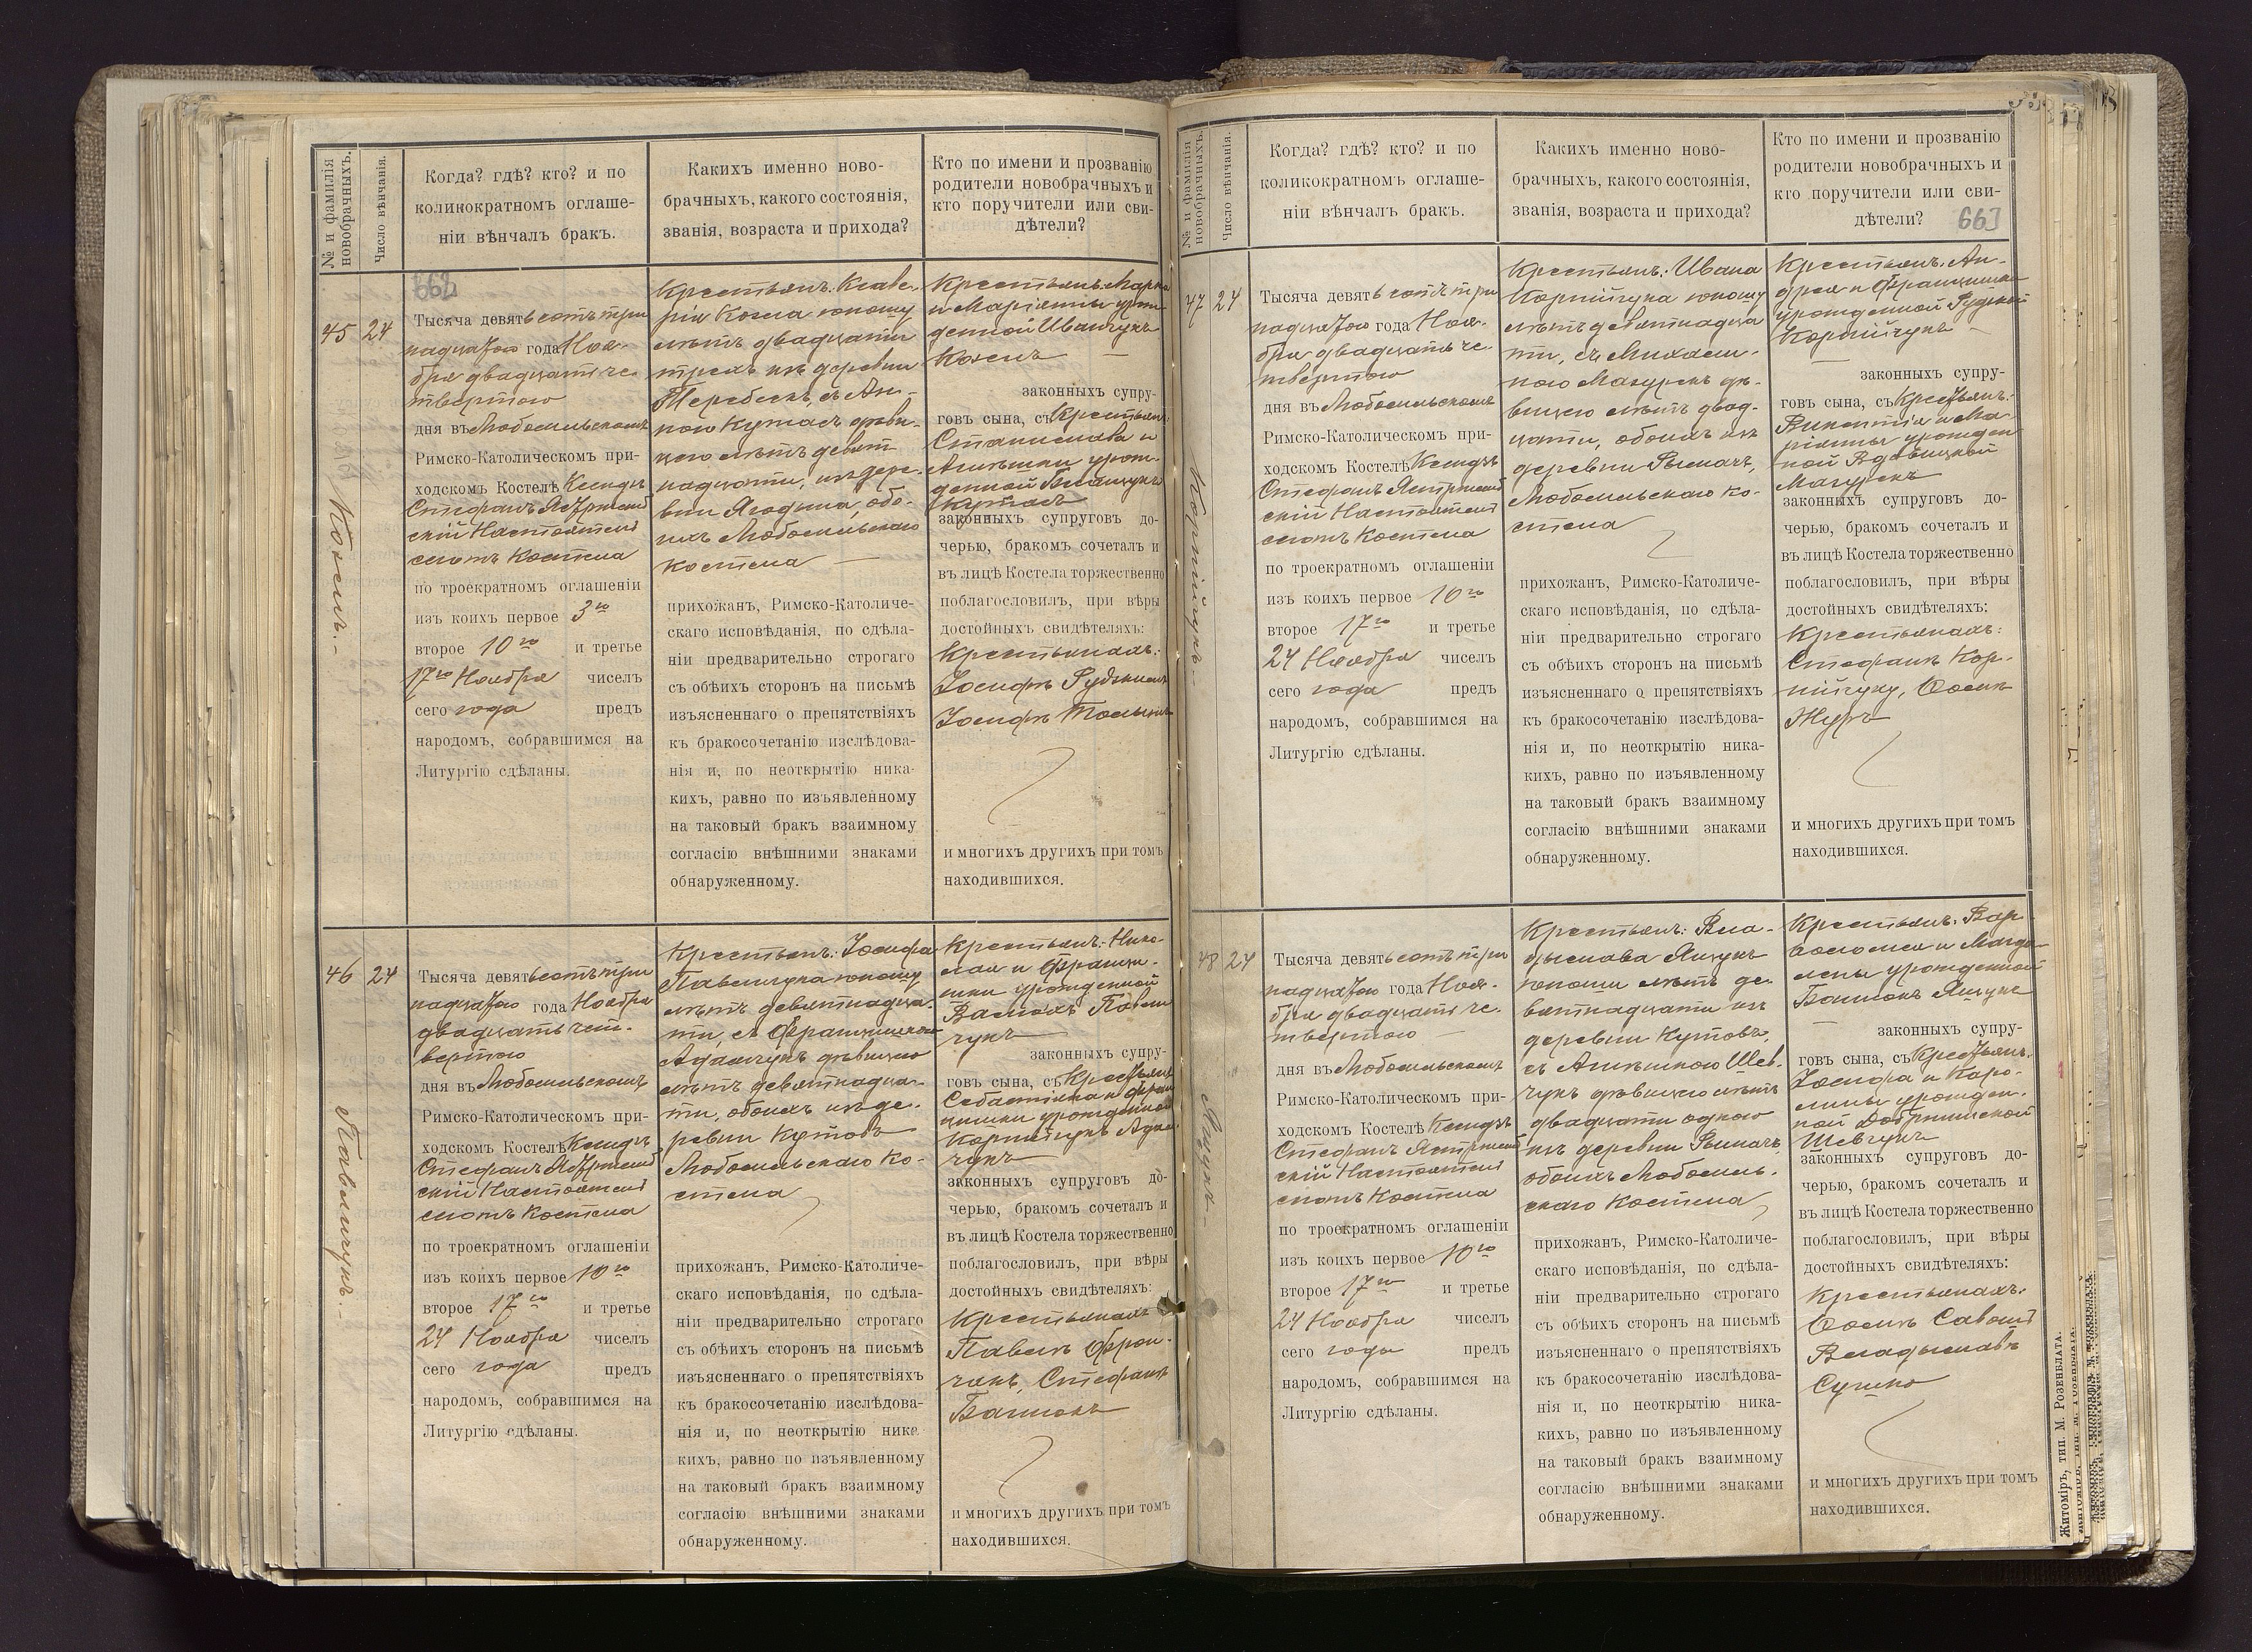 № и фамилія новобрачныхъ.
Число вѣнчанія.
Когда? гдѣ? кто? и по
коликократномъ оглаше-
ніи вѣнчалъ бракъ.
Какихъ именно ново-
брачныхъ, какого состоянія,
званія, возраста и прихода?
Кто по имени и прозванію
родители новобрачныхъ и
кто поручители или сви-
дѣтели?
662
45
24
Козелъ.-
Тысяча девятьсотъ три
надцатого года Ноя-
бря двадцать че-
твертого
дня въ Любомльскомъ
Римско-Католическомъ при-
ходскомъ Костелѣ Ксендзъ
Стефанъ Ястржемб
скій Настоятель
сего Костела
по троекратномъ оглашеніи
изъ коихъ первое 3го
второе 10го и третье
17го Ноября чиселъ
сего года предъ
народомъ, собравшимся на
Литургію сдѣланы.
Крестьянъ: Ксаве-
рія Козела юношу
лѣтъ двадцати
трехъ изъ деревни
Теребеек, съ Ан-
ною Кутасъ дѣви-
цею лѣтъ девят
надцати, изъ дере-
вни Ягодина, обо-
ихъ Любомльскаго
костела
прихожанъ, Римско-Католиче-
скаго исповѣданія, по сдѣла-
ніи предварительно строгаго
съ обѣихъ сторонъ на письмѣ
изъясненнаго о препятствіяхъ
къ бракосочетанію изслѣдова-
нія и, по неоткрытію ника-
кихъ, равно по изъявленному
на таковый бракъ взаимному
согласію внѣшними знаками
обнаруженному.
Крестьянъ: Марка
и Маріянны урож
денной Иванчукъ
Козелъ
законныхъ супру-
говъ сына, съ Крестьян:
Станислава и
Агнѣшки урож-
денной
Кутасъ
законныхъ супруговъ до-
черью, бракомъ сочеталъ и
въ лицѣ Костела торжественно
поблагословилъ, при вѣры
достойныхъ свидѣтеляхъ:
Крестьянахъ:
Іосифъ
Іосифъ
и многихъ другихъ при томъ
находившихся.
46
24
Павельчукъ.-
Тысяча девятьсотъ три
надцатого года Ноября
двадцать чет-
вертого
дня въ Любомльскомъ
Римско-Католическомъ при-
ходскомъ Костелѣ Ксендзъ
Стефанъ Ястржемб
скій Настоятель
сего Костела
по троекратномъ оглашеніи
изъ коихъ первое 10го
второе 17го и третье
24 Ноября чиселъ
сего года предъ
народомъ, собравшимся на
Литургію сдѣланы.
Крестьянъ: Іосифа
Павельчука юношу
лѣтъ девятнадца-
ти, съ Францишкою
Адамчукъ дѣвицею
лѣтъ девятнадца-
ти, обоихъ изъ де-
ревни Кутовъ
Любомльскаго ко-
стела
прихожанъ, Римско-Католиче-
скаго исповѣданія, по сдѣла-
ніи предварительно строгаго
съ обѣихъ сторонъ на письмѣ
изъясненнаго о препятствіяхъ
къ бракосочетанію изслѣдова-
нія и, по неоткрытію ника
кихъ, равно по изъявленному
на таковый бракъ взаимному
согласію внѣшними знаками
обнаруженному.
Крестьянъ: Нико-
лая и Францы-
шки урожденной
Павель
чукъ
законныхъ супру-
говъ сына, съ Крестьянъ
Себастіяна и Фран
цишки урожденной
Адам
чукъ
законныхъ супруговъ до-
черью, бракомъ сочеталъ и
въ лицѣ Костела торжественно
поблагословилъ, при вѣры
достойныхъ свидѣтеляхъ:
Крестьянахъ
Павелъ Фрон-
чекъ, Стефанъ
Башмакъ
и многихъ другихъ при томъ
находившихся.
№ и фамилія новобрачныхъ.
Число вѣнчанія.
Когда? гдѣ? кто? и по
коликократномъ оглаше-
ніи вѣнчалъ бракъ.
Какихъ именно ново-
брачныхъ, какого состоянія,
званія, возраста и прихода?
Кто по имени и прозванію
родители новобрачныхъ и
кто поручители или сви-
дѣтели?
663
47
24
Корнійчукъ.-
Тысяча девятьсотъ три
надцатого года Ноя-
бря двадцать че-
твертого
дня въ Любомльскомъ
Римско-Католическомъ при-
ходскомъ Костелѣ Ксендзъ
Стефанъ Ястржемб
скій Настоятель
сего Костела
по троекратномъ оглашеніи
изъ коихъ первое 10го
второе 17го и третье
24 Ноября чиселъ
сего года предъ
народомъ, собравшимся на
Литургію сдѣланы.
Крестьянъ: Ивана
Корнійчука юношу
лѣтъ девятнадца
ти, съ Михали-
ною Мазурекъ дѣ-
вицею лѣтъ двад-
цати, обоихъ изъ
деревни Рымачъ,
Любомльскаго ко-
стела
прихожанъ, Римско-Католиче-
скаго исповѣданія, по сдѣла-
ніи предварительно строгаго
съ обѣихъ сторонъ на письмѣ
изъясненнаго о препятствіяхъ
къ бракосочетанію изслѣдова-
нія и, по неоткрытію ника-
кихъ, равно по изъявленному
на таковый бракъ взаимному
согласію внѣшними знаками
обнаруженному.
Крестьянъ: Ан-
дрея и Францишки
урожденной Рудской
Корнійчукъ
законныхъ супру-
говъ сына, съ Крестьянъ:
Викентія и Ма-
ріянны урожден
ной Вдовицкой
Мазурекъ
законныхъ супруговъ до-
черью, бракомъ сочеталъ и
въ лицѣ Костела торжественно
поблагословилъ, при вѣры
достойныхъ свидѣтеляхъ:
Крестьянахъ:
Стефанъ Кор-
нійчукъ, Осипъ
Журъ
и многихъ другихъ при томъ
находившихся.
48
24
Яцукъ.-
Тысяча девятьсотъ три
надцатого года Ноя-
бря двадцать че-
твертого
дня въ Любомльскомъ
Римско-Католическомъ при-
ходскомъ Костелѣ Ксендзъ
Стефанъ Ястржемб
скій Настоятель
сего Костела
по троекратномъ оглашеніи
изъ коихъ первое 10го
второе 17го и третье
24 Ноября чиселъ
сего года предъ
народомъ, собравшимся на
Литургію сдѣланы.
Крестьянъ: Вла-
дыслава Яцукъ
юноши лѣтъ де-
вятнадцати изъ
деревни Кутовъ,
съ Агнѣшкою Шев-
чукъ дѣвицею лѣтъ
двадцати одного
изъ деревни Рымачъ,
обоихъ Любомль-
скаго костела,
прихожанъ, Римско-Католиче-
скаго исповѣданія, по сдѣла-
ніи предварительно строгаго
съ обѣихъ сторонъ на письмѣ
изъясненнаго о препятствіяхъ
къ бракосочетанію изслѣдова-
нія и, по неоткрытію ника-
кихъ, равно по изъявленному
на таковый бракъ взаимному
согласію внѣшними знаками
обнаруженному.
Крестьянъ: Вар-
ѳоломея и Магда-
лены урожденной
Башмакъ Яцукъ
законныхъ супру-
говъ сына, съ Крестьянъ.
Іосифа и Каро-
лины урожден-
ной Добрянской
Шевчукъ
законныхъ супруговъ до-
черью, бракомъ сочеталъ и
въ лицѣ Костела торжественно
поблагословилъ, при вѣры
достойныхъ свидѣтеляхъ:
Крестьянахъ:
Осипъ
Владыславъ
Сушко
и многихъ другихъ при томъ
находившихся.
Житоміръ, тип. М. Розенблата.